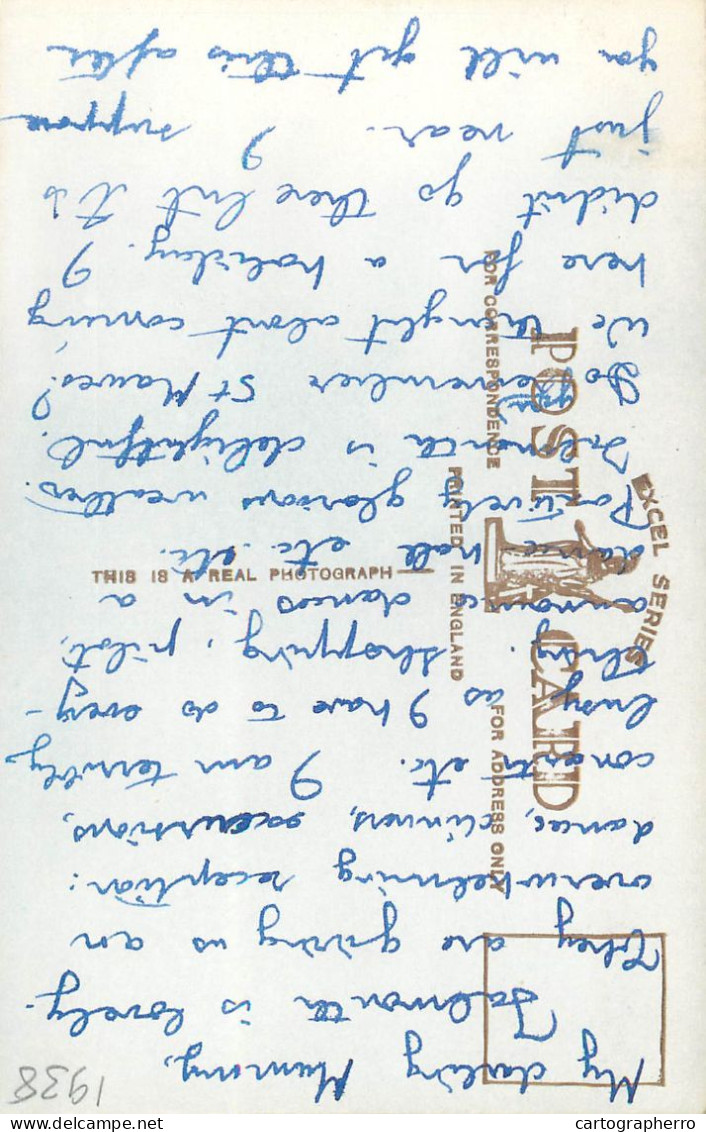 1938
My darling Mummy,
Falmouth is lovely.
They are giving us an
overwhelming reception:
dances, dinners, excursions,
concerts etc. I am terribly
busy as I have to do every-
thing. Shopping, pilot,
announce dances in a
dance hall etc. etc.
Positively glorious weather.
Falmouth is delightful.
Do you remember St Mawes?
We thought about coming
here for a holiday. I
didnt go there but its
just near. I suppose
you will get this after
POST CARD
FOR CORRESPONDENCE
FOR ADDRESS ONLY
PRINTED IN ENGLAND
EXCEL SERIES
THIS IS A REAL PHOTOGRAPH
cartographerro